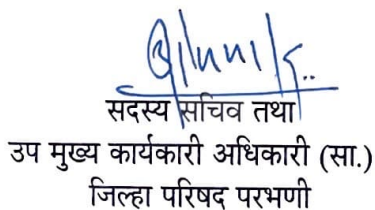 सदस्य सचिव तथा
उप मुख्य कार्यकारी अधिकारी (सा.)
जिल्हा परिषद परभणी